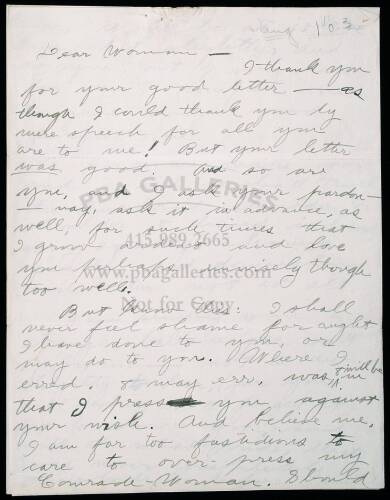 Aug 1903
Dear Woman —
I thank you
for your good letter — as
though I could thank you by
mere speech for all you
are to me! But your letter
was good. And so are
you, and I ask your pardon —
nay, ask it in advance, as
well, for such times that
I grow and love
you perhaps though
too well.
But know this: I shall
never feel shame for aught
I have done to you, or
may do to you. Where I
erred, & may err, was, & will be in
that I press you against
your wish. And believe me,
I am far too fastidious to
care to over-press my
Comrade-Woman. Should
PBA GALLERIES
415.989.2665
www.pbagalleries.com
Not for Copy